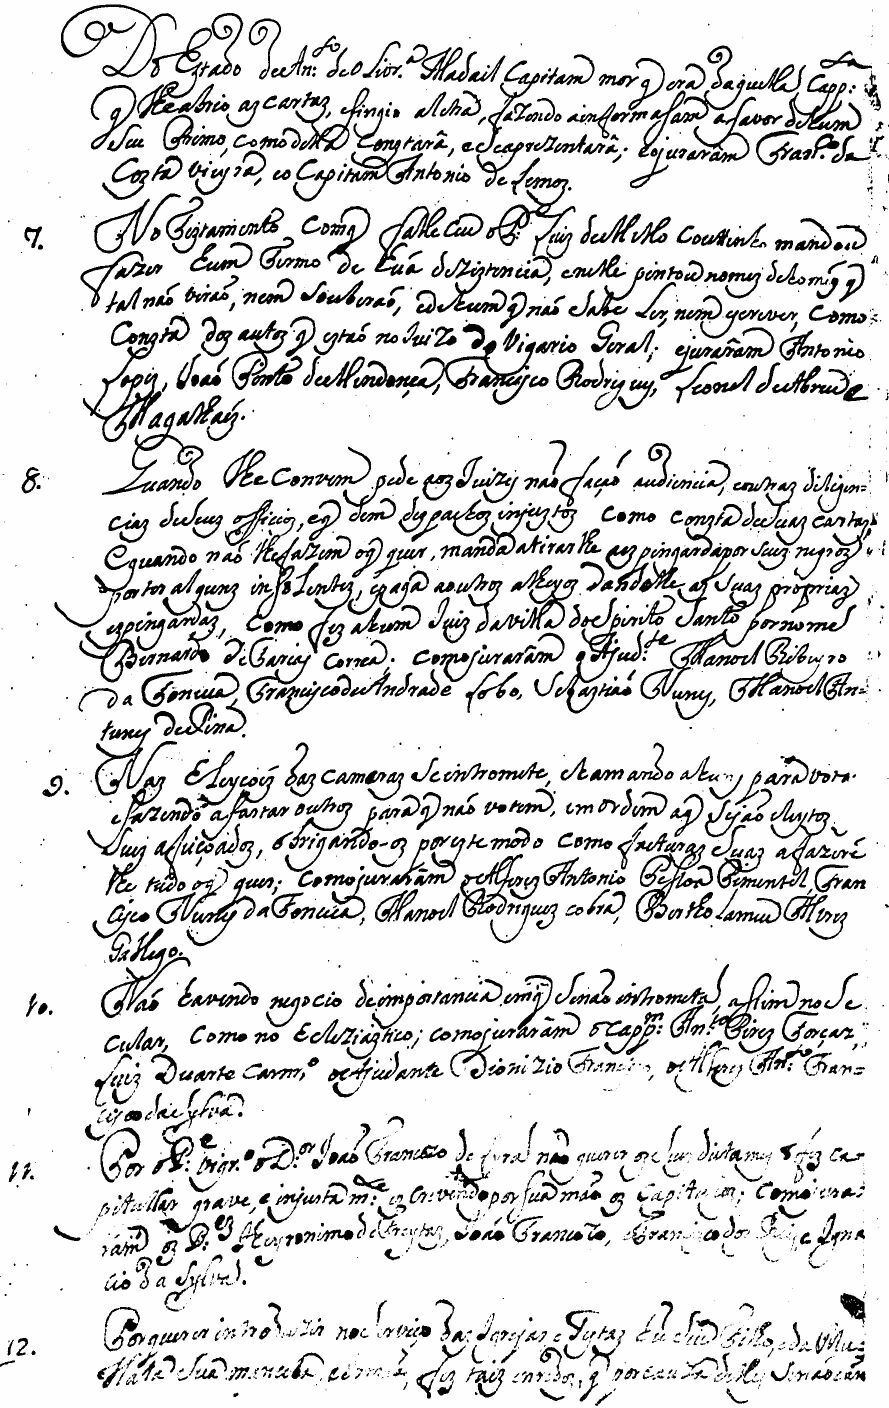 Do Estado de An.to de Olivr.a Madail Capitam mor q̃ era daquella Capp.nia
q̃ lhe abrio as cartas, e fingio a letra, fazendo a informasam a favor de hum
seu Primo, como della Constará, e se aprezentará; e ojuraram Fran.co da
Costa Vieyra, e o Capitam Antonio de Lemos.
7. No Testamento Com q̃ falleceu o P.e Luiz de Mello Couttinho mandou
fazer hum Termo de huã dezistencia, e nelle pintou nomes de homẽs q̃
tal não virão, nem souberão, e de hum q̃ não sabe Ler, nem escrever, Como
Consta dos autos q̃ estão no Juizo do Vigario Geral; ejuraram Antonio
Lopes, João Pinto de Mendonça, Francisco Rodrigues, Leonel de Abreu e
Magalhaẽs.
8. Quando lhe Convem pede aos Juizes não fação audiencia, e outras diligen=
cias de seus officios, e q̃ dem despachos injustos como consta de suas cartas
E quando não lhe fazem o q̃ quer, manda atirarlhe a espingarda por seus negros
por ter alguns insolentes, e paga a outros alheyos dandolhe as suas proprias
espingardas, como fez a hum Juiz da villa do Espirito Santo por nome
Bernardo de Farias Correa. como juraram o Ajud.te Manoel Ribeyro
da Fonceca, Francisco de Andrade Lobo, Sebastião Nunes, Manoel An=
tunes de Pina.
9. Nas Eleycoẽs das Cameras se intromete, chamando a huns para votar
e fazendo afastar outros para q̃ não votem, em ordem a q̃ sejão eleytos
seus afeiçoados, obrigando-os por este modo como facturas suas a fazerẽ
lhe tudo o q̃ quer; como juraram o Alferes Antonio Pessoa Pimentel, Fran
cisco Nunes da Fonceca, Manoel Rodrigues cobra, Bertholameu Pires
Gallego.
10. Não havendo negocio de importancia, em q̃ se não intrometa, assim no se
cular, como no Ecleziastico; como juraram o Capp.m An.to Pires Forçaz,
Luiz Duarte Carnr.o o Ajudante Dionizio Francisco, o Alferes An.to Fran=
cisco da Sylva.
11. Por o P.e Vigr.o o D.or João Francisco de não querer os seus dictames o fez ca=
pitullar grave, e injustam.te escrevendo por sua mão os Capitulos; Como jura=
ram os P.es Hieronimo de Freytas, João Francisco, Francisco dos Reis, e Igna
cio da Sylva.
12. Por querer introduzir no serviço das Igrejas e Festas hu seu Filho, e da
Mulata sua manceba, fez taes enredos, q̃ por cauza delles